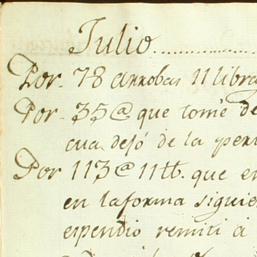 Julio.............
Por. 78 arrobas 11 libra
Por. 35@ que tomé de
cua dejó de la per
Por 113@11tt. que en
en laforma siguie
espendio remiti a